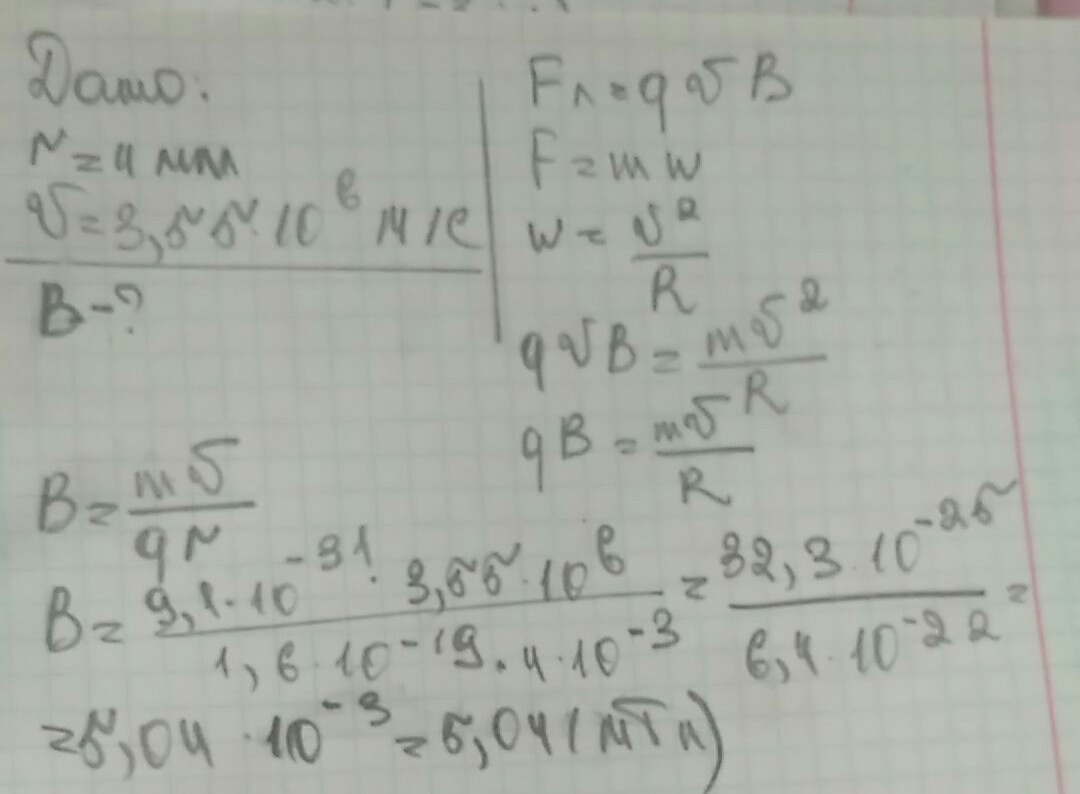 Дано:
r = 4 мм
v = 3,55 · 10⁶ м/с
B - ?
Fл = qvB
F = mw
w = v²/R
qvB = mv²/R
qB = mv/R
B = mv/qr
B = 9,1 · 10⁻³¹ · 3,55 · 10⁶ / 1,6 · 10⁻¹⁹ · 4 · 10⁻³ = 32,3 · 10⁻²⁵ / 6,4 · 10⁻²² =
= 5,04 · 10⁻³ = 5,04 (мТл)